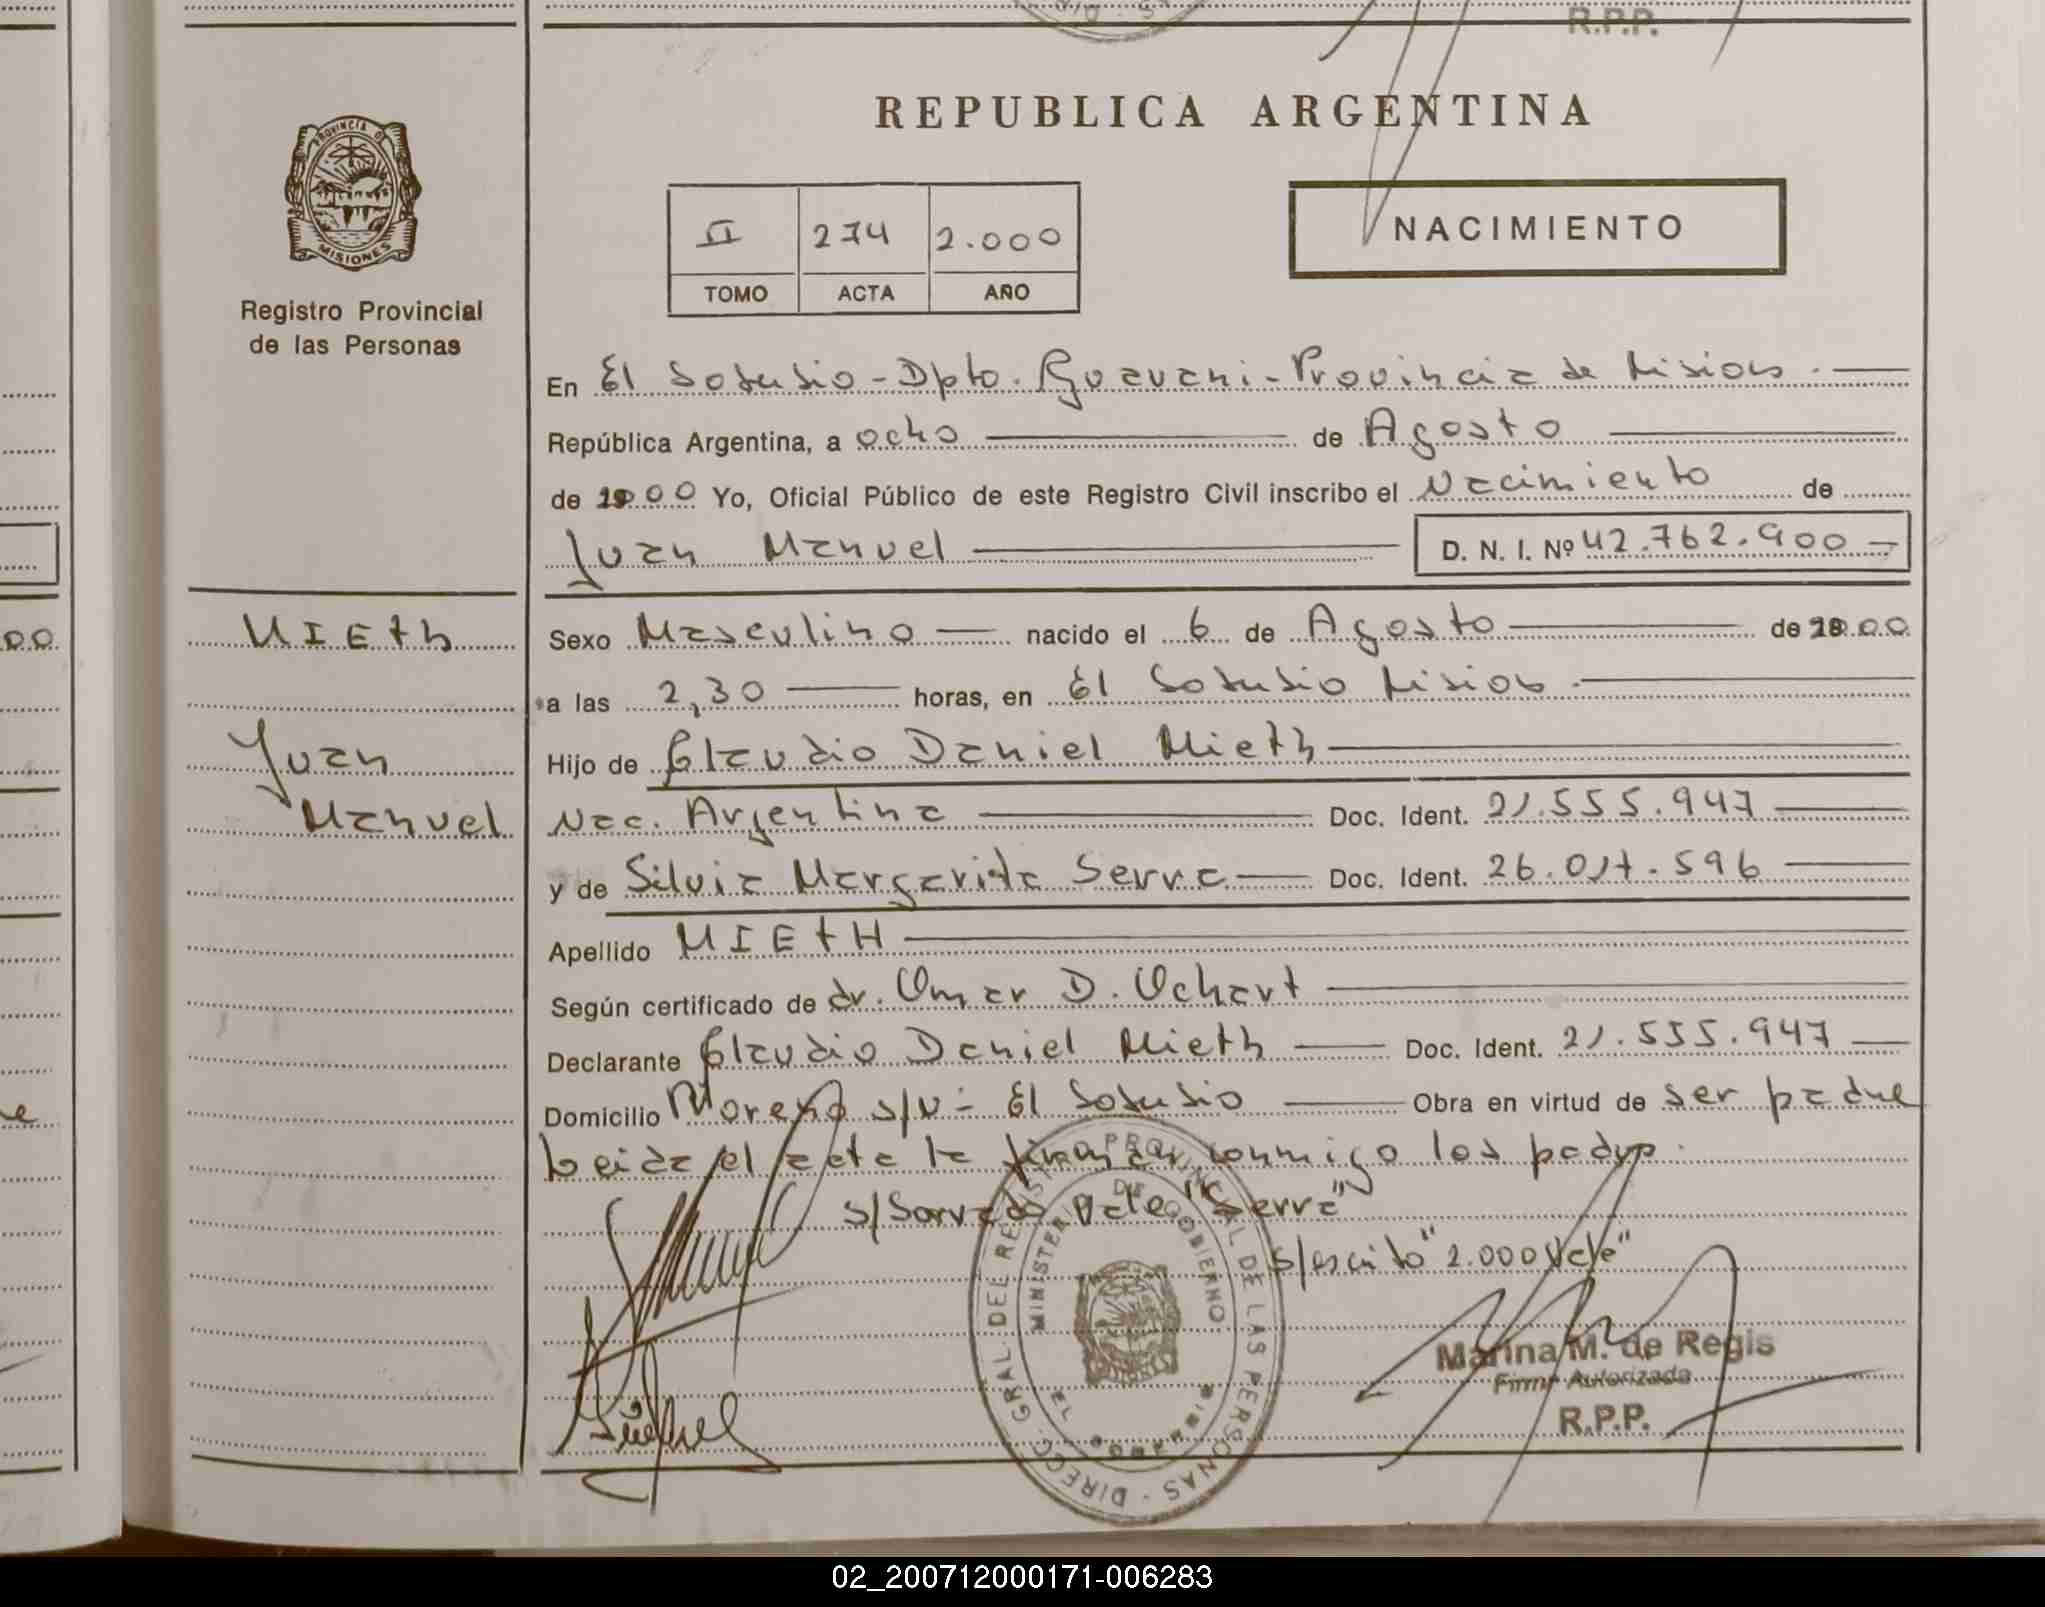 R.P.P.
PROVINCIA DE
MISIONES
Registro Provincial
de las Personas
REPUBLICA ARGENTINA
II 274 2.000
TOMO ACTA AÑO
NACIMIENTO
En El Soberbio - Dpto. Guarani - Provincia de Misiones.
República Argentina, a ocho de Agosto
de 2000 Yo, Oficial Público de este Registro Civil inscribo el Nacimiento de
Juan Manuel D. N. I. Nº 42.762.900
MIEth
Sexo Masculino nacido el 6 de Agosto de 2000
a las 2,30 horas, en El Soberbio Misiones.
Juan
Manuel
Hijo de Claudio Daniel Mieth
Nac. Argentina Doc. Ident. 21.555.947
y de Silvia Margarita Serra Doc. Ident. 26.017.596
Apellido MIEtH
Según certificado de dr. Omar D. Ochart
Declarante Claudio Daniel Mieth Doc. Ident. 21.555.947
Domicilio Moreno s/n - El Soberbio Obra en virtud de ser padre
Leida el acta la firman conmigo los padres.
s/borrado Vale "Serra"
s/escrito "2.000 Vale"
DIRECC. GRAL. DEL REGISTRO PROVINCIAL DE LAS PERSONAS
MINISTERIO DE GOBIERNO
Marina M. de Regis
Firma Autorizada
R.P.P.
02_200712000171-006283